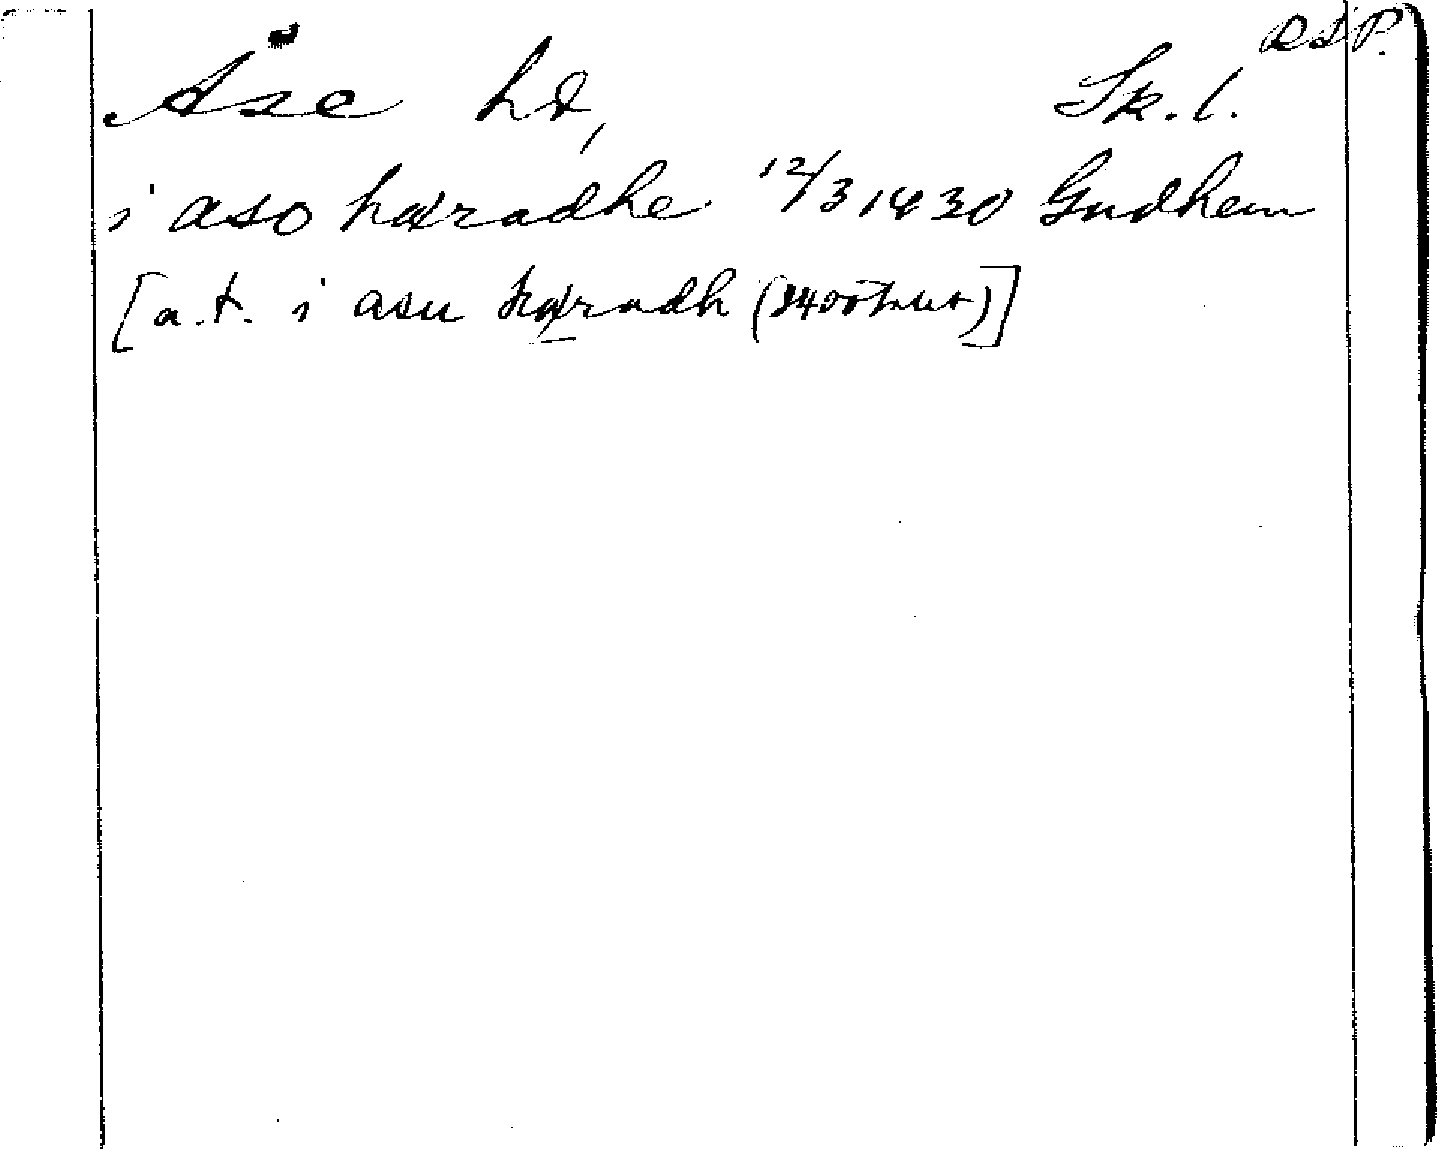 RSP.
Åse hd, Sk. l.
i aso hæradhe 12/3 1430 Gudhem
[a.t. i asu hæradh (1400 talet)]